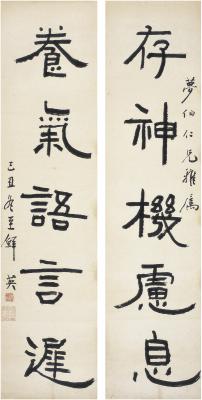 存神機慮息
夢伯仁兄雅屬
養氣語言遲
己丑冬至鐸英